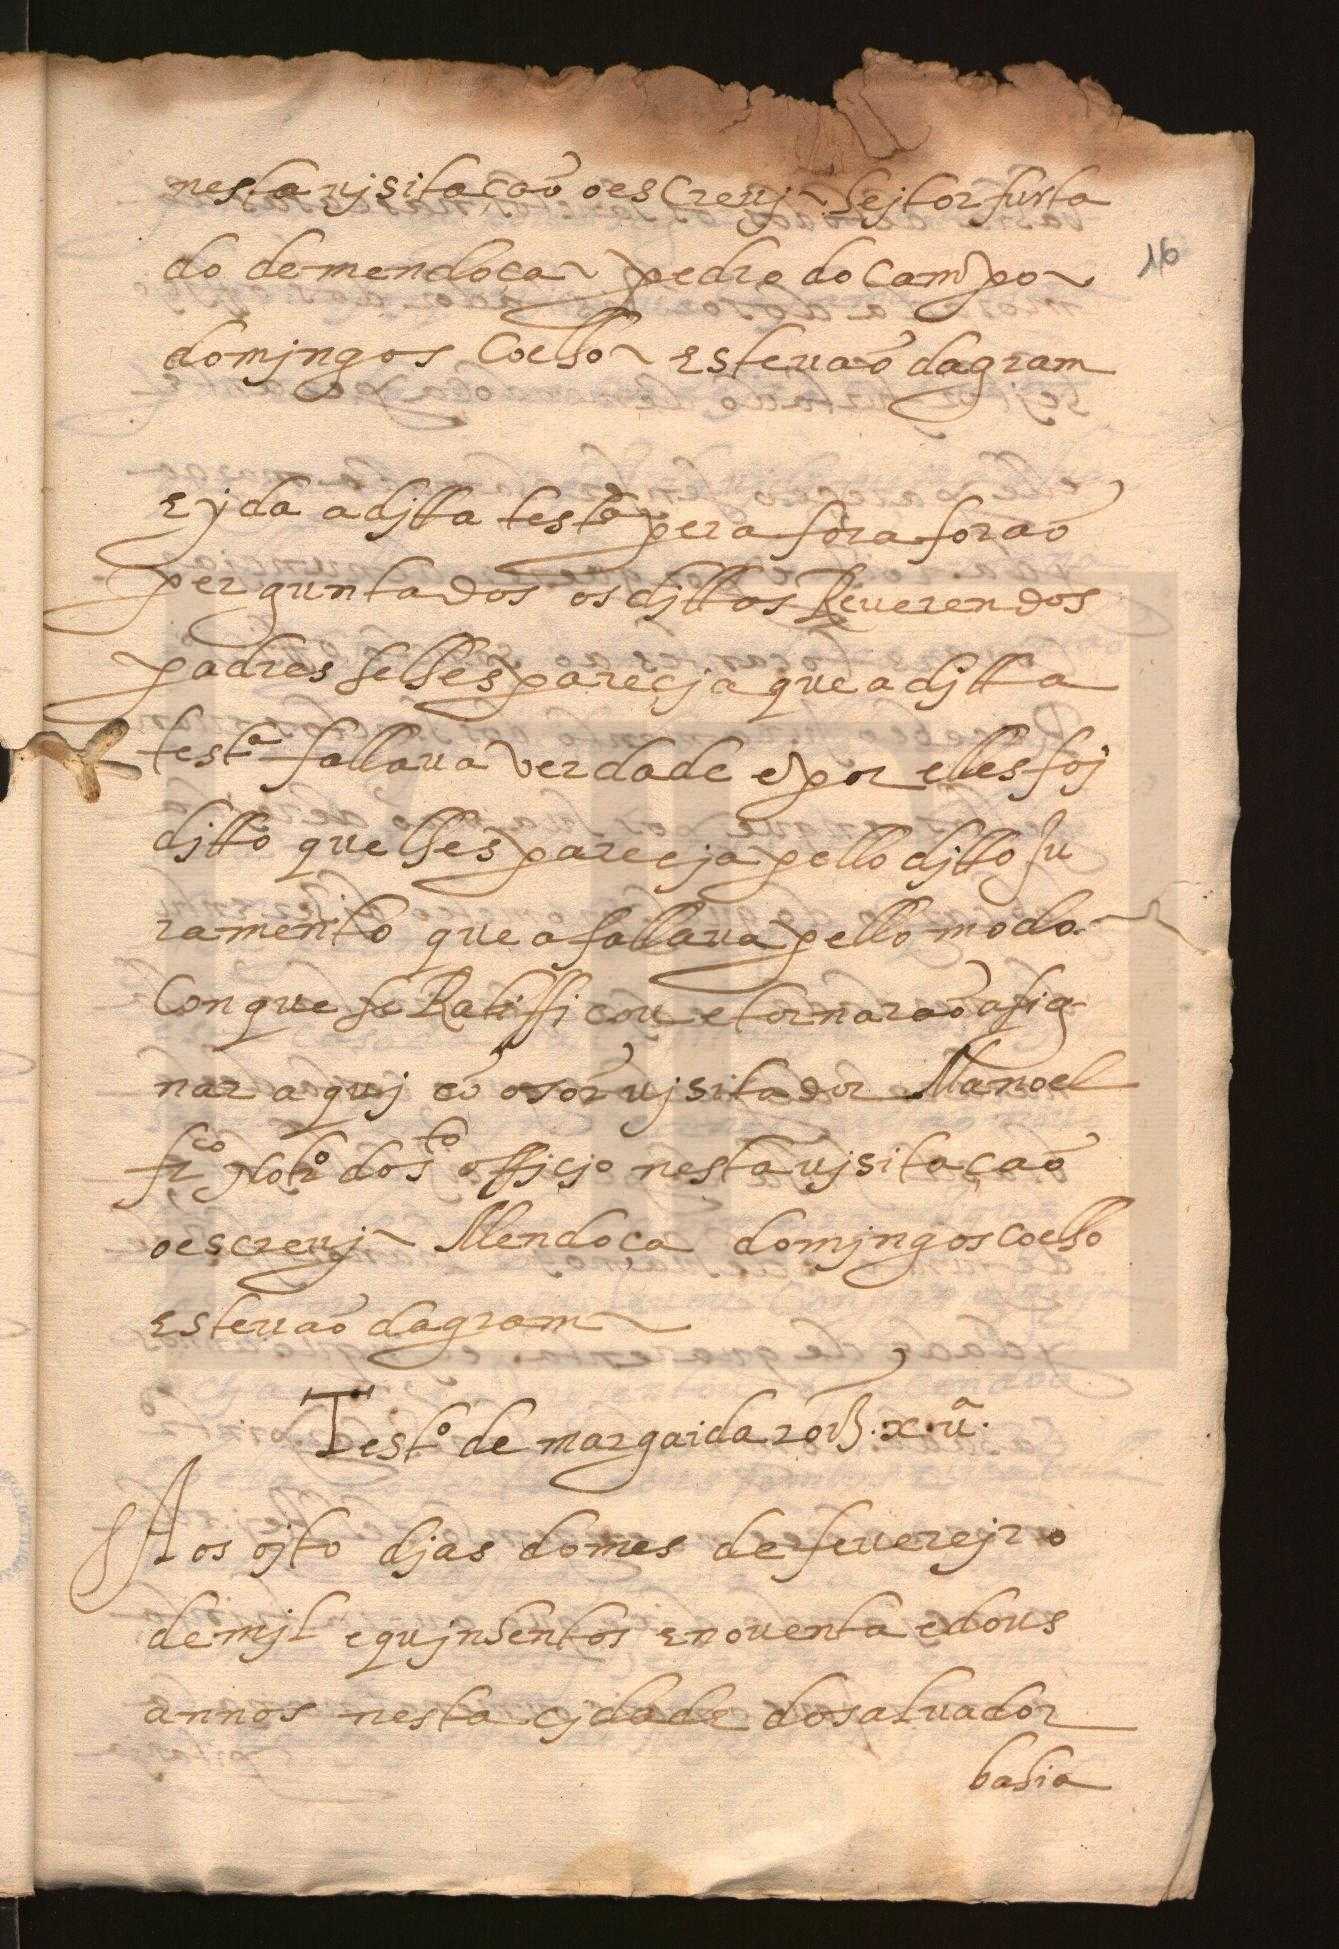 16
nesta vjsitação o escrevj ~ hejtor furta
do de mendoça ~ pedro do campo ~
domjngos Coelho ~ Estevaõ da gram
E yda a djtta test.ª pera fora foraõ
perguntados os djttos Reverendos
padres se lhes pareçja que a djtta
test.ª fallava verdade e por elles foj
djtto que lhes pareçja pello djtto Ju
ramento que a fallava pello modo.
Con que se Ratifficou e tornaraõ asig
nar aquj cõ o sõr vjsitador Manoel
fr.co Not.ro do s.to offiçjo nesta vjsitaçaõ
o escrevj ~ Mendoça domjngos coelho
Estevaõ da gram ~
Test.o de margaida roiz .x. v.ª
Aos ojto djas do mes de feverejro
de mjl e qujnhentos e noventa e dous
annos nesta çjdade do salvador
bahia